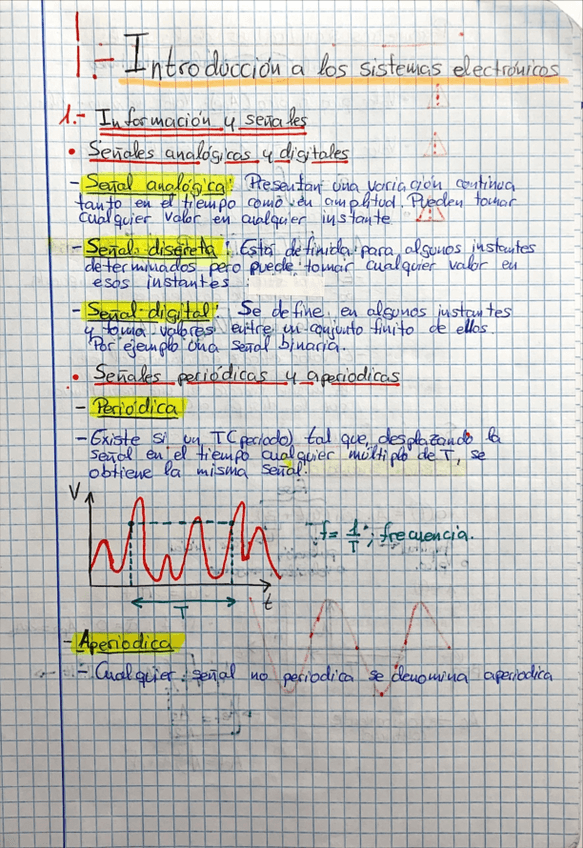 1.- Introducción a los sistemas electrónicos
1.- Información y señales
• Señales analógicas y digitales
- Señal analógica: Presentan una variación continua
tanto en el tiempo como en amplitud. Pueden tomar
cualquier valor en cualquier instante
- Señal discreta: Está definida para algunos instantes
determinados pero puede tomar cualquier valor en
esos instantes
- Señal digital: Se define en algunos instantes
y toma valores entre un conjunto finito de ellos.
Por ejemplo una señal binaria.
• Señales periódicas y aperiodicas
- Periódica
- Existe si un T(periodo) tal que, desplazando la
señal en el tiempo cualquier múltiplo de T, se
obtiene la misma señal.
V
f = 1/T; frecuencia.
T
t
- Aperiodica
- Cualquier señal no periodica se denomina aperiodica